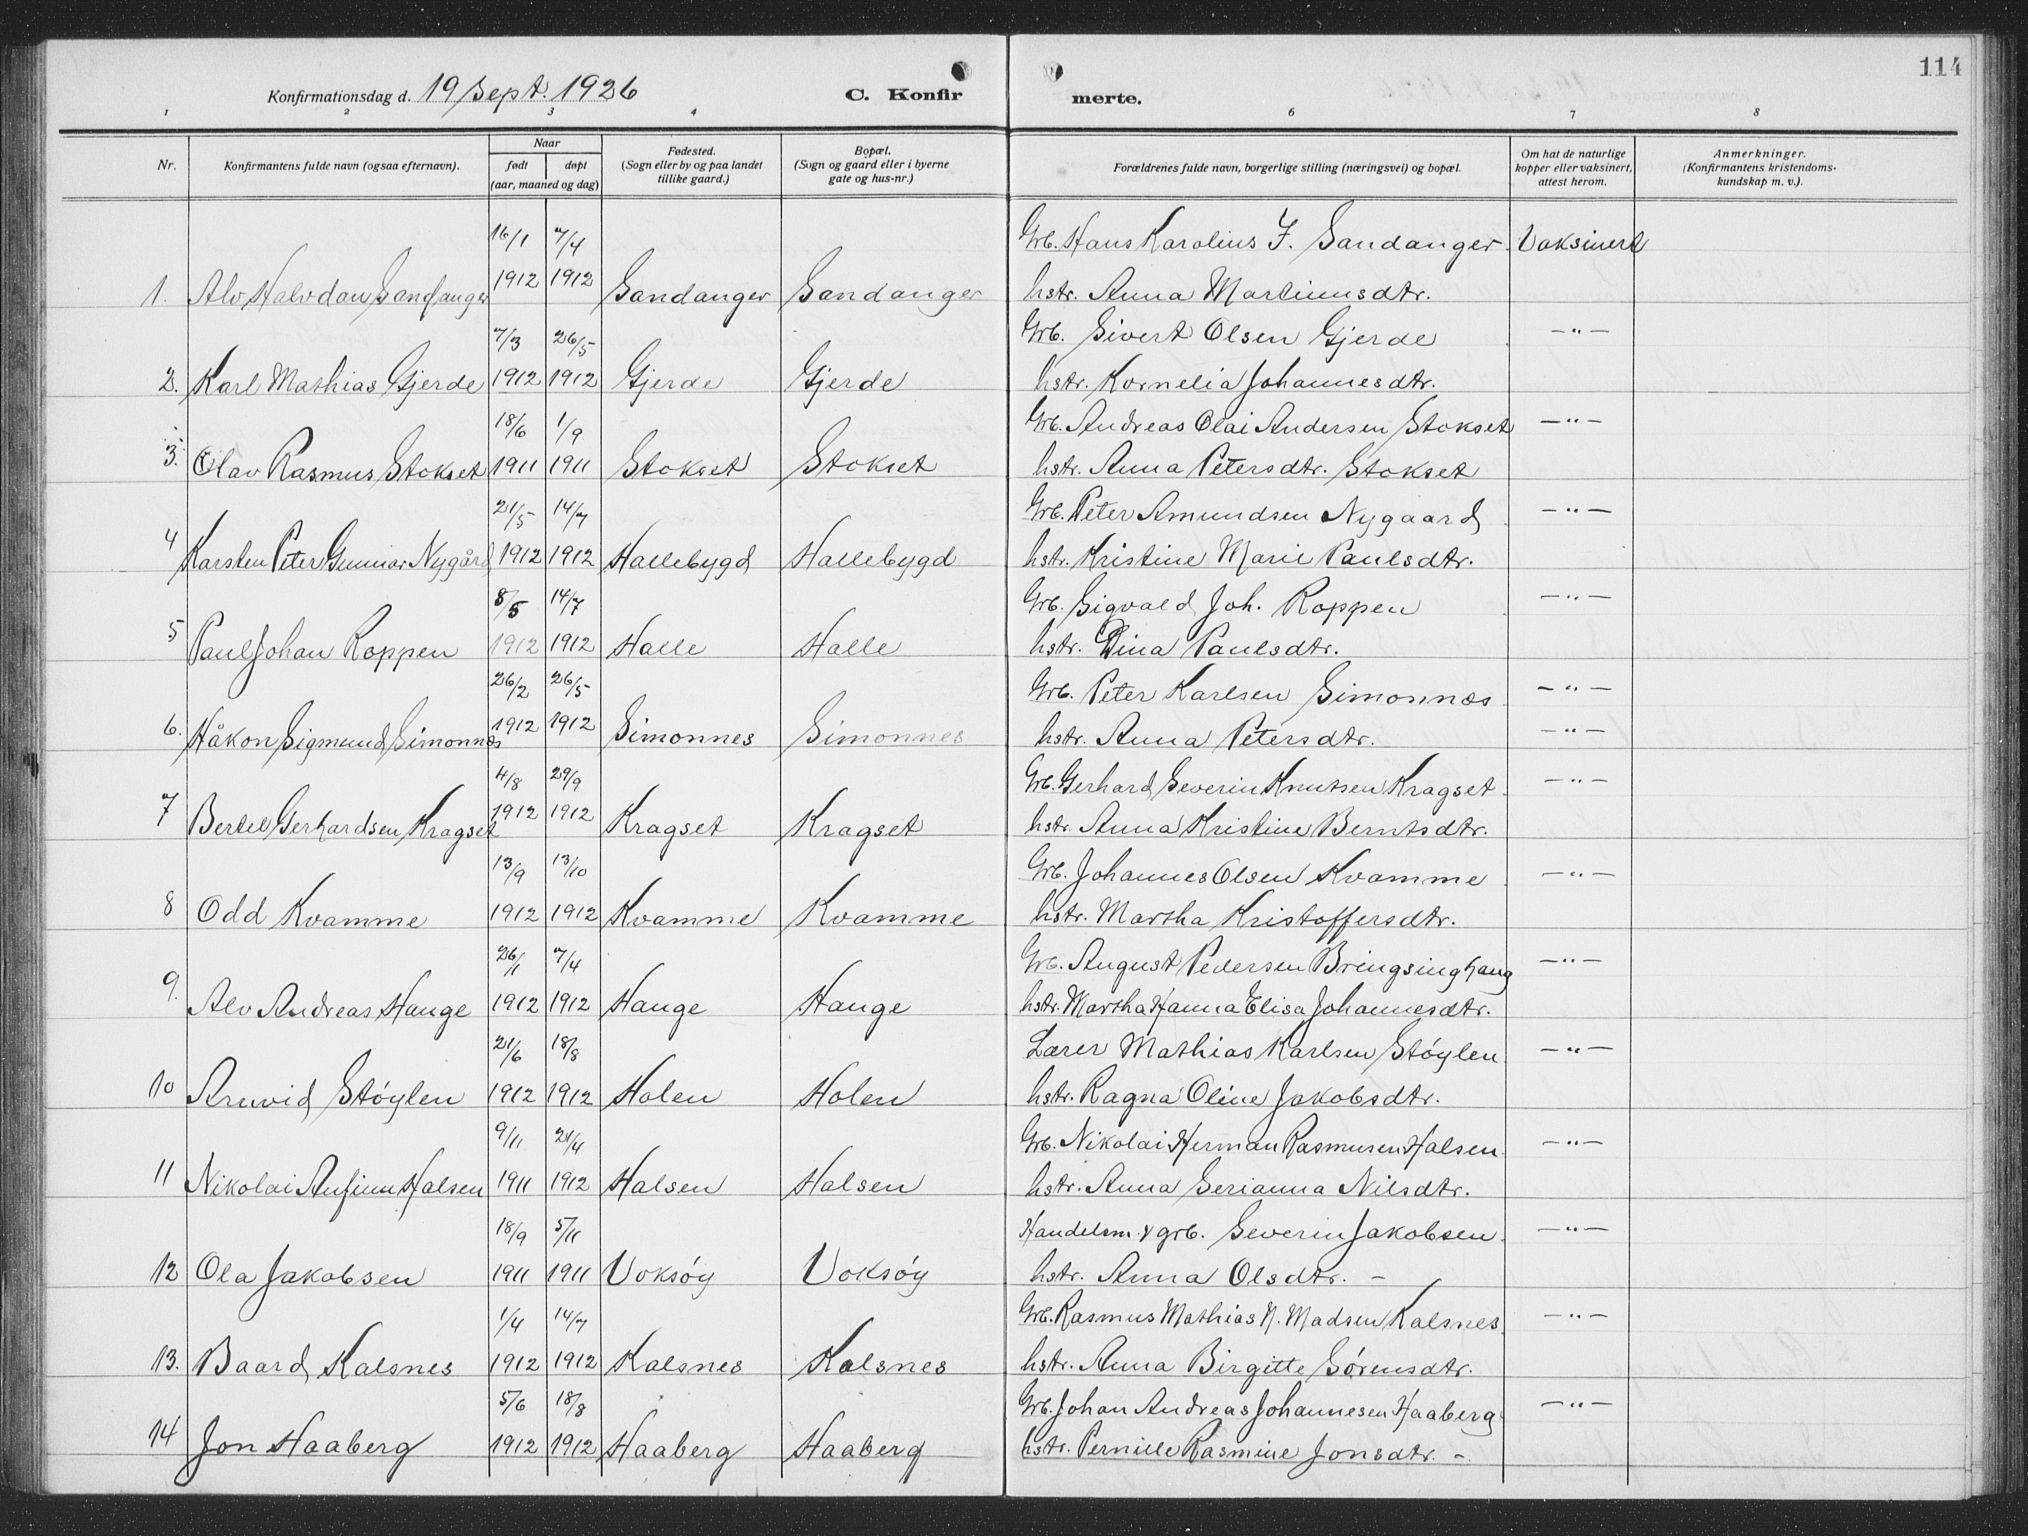 114
Konfirmationsdag d. 19 Sept. 1926 C. Konfir merte.
1 2 3 4 6 7 8
Nr. Konfirmantens fulde navn (ogsaa efternavn). Naar født døpt (aar, maaned og dag) Fødested. (Sogn eller by og paa landet tillike gaard.) Bopæl. (Sogn og gaard eller i byerne gate og hus-nr.) Forældrenes fulde navn, borgerlige stilling (næringsvei) og bopæl. Om hat de naturlige kopper eller vaksinert, attest herom. Anmerkninger. (Konfirmantens kristendoms-kundskap m. v.).
16/1 7/4 Grb. Hans Karolius J. Sandanger Vaksinert
1. Alv Halvdan Sandanger 1912 1912 Sandanger Sandanger hstr. Anna Martinusdtr.
7/3 26/5 Grb. Sivert Olsen Gjerde -"-
2. Karl Mathias Gjerde 1912 1912 Gjerde Gjerde hstr. Kornelia Johannesdtr.
18/6 1/9 Grb. Andreas Olai Andersen Stokset -"-
3. Olav Rasmus Stokset 1911 1911 Stokset Stokset hstr. Anna Petersdtr. Stokset
21/5 14/7 Grb. Peter Amundsen Nygaard -"-
4 Karsten Peter Gunnar Nygård 1912 1912 Hallebygd Hallebygd hstr. Kristine Marie Paulsdtr.
8/5 14/7 Grb. Sigvald Joh. Roppen -"-
5 Paul Johan Roppen 1912 1912 Halle Halle hstr. Dina Paulsdtr.
26/2 26/5 Grb. Peter Karlsen Simonnæs -"-
6. Håkon Sigmund Simonnæs 1912 1912 Simonnes Simonnes hstr. Anna Petersdtr. -"-
4/8 29/9 Grb. Gerhard Severin Knutsen Kragset -"-
7 Bertel Gerhardsen Kragset 1912 1912 Kragset Kragset hstr. Anna Kristine Berntsdtr.
13/9 13/10 Grb. Johannes Olsen Kvamme -"-
8 Odd Kvamme 1912 1912 Kvamme Kvamme hstr. Martha Kristoffersdtr.
26/1 7/4 Grb. August Pedersen Bringsinghaug -"-
9. Alv Andreas Hauge 1912 1912 Hauge Hauge hstr. Martha Hanna Elisa Johannesdtr.
21/6 18/8 Lærer Mathias Karlsen Støylen -"-
10 Arnvid Støylen 1912 1912 Holen Holen hstr. Ragna Oline Jakobsdtr.
9/11 21/4 Grb. Nikolai Herman Rasmusen Halsen -"-
11 Nikolai Anfinn Halsen 1911 1912 Halsen Halsen hstr. Anna Serianna Nilsdtr.
18/9 5/11 Handelsm. & grb. Severin Jakobsen -"-
12 Ola Jakobsen 1911 1911 Voksøy Voksøy hstr. Anna Olsdtr. -
1/4 14/7 Grb. Rasmus Mathias N. Madsen Kalsnes -"-
13. Baard Kalsnes 1912 1912 Kalsnes Kalsnes hstr. Anna Birgitte Sørensdtr.
5/6 18/8 Grb. Johan Andreas Johannesen Haaberg -"-
14 Jon Haaberg 1912 1912 Haaberg Haaberg hstr. Pernille Rasmine Jonsdtr. -